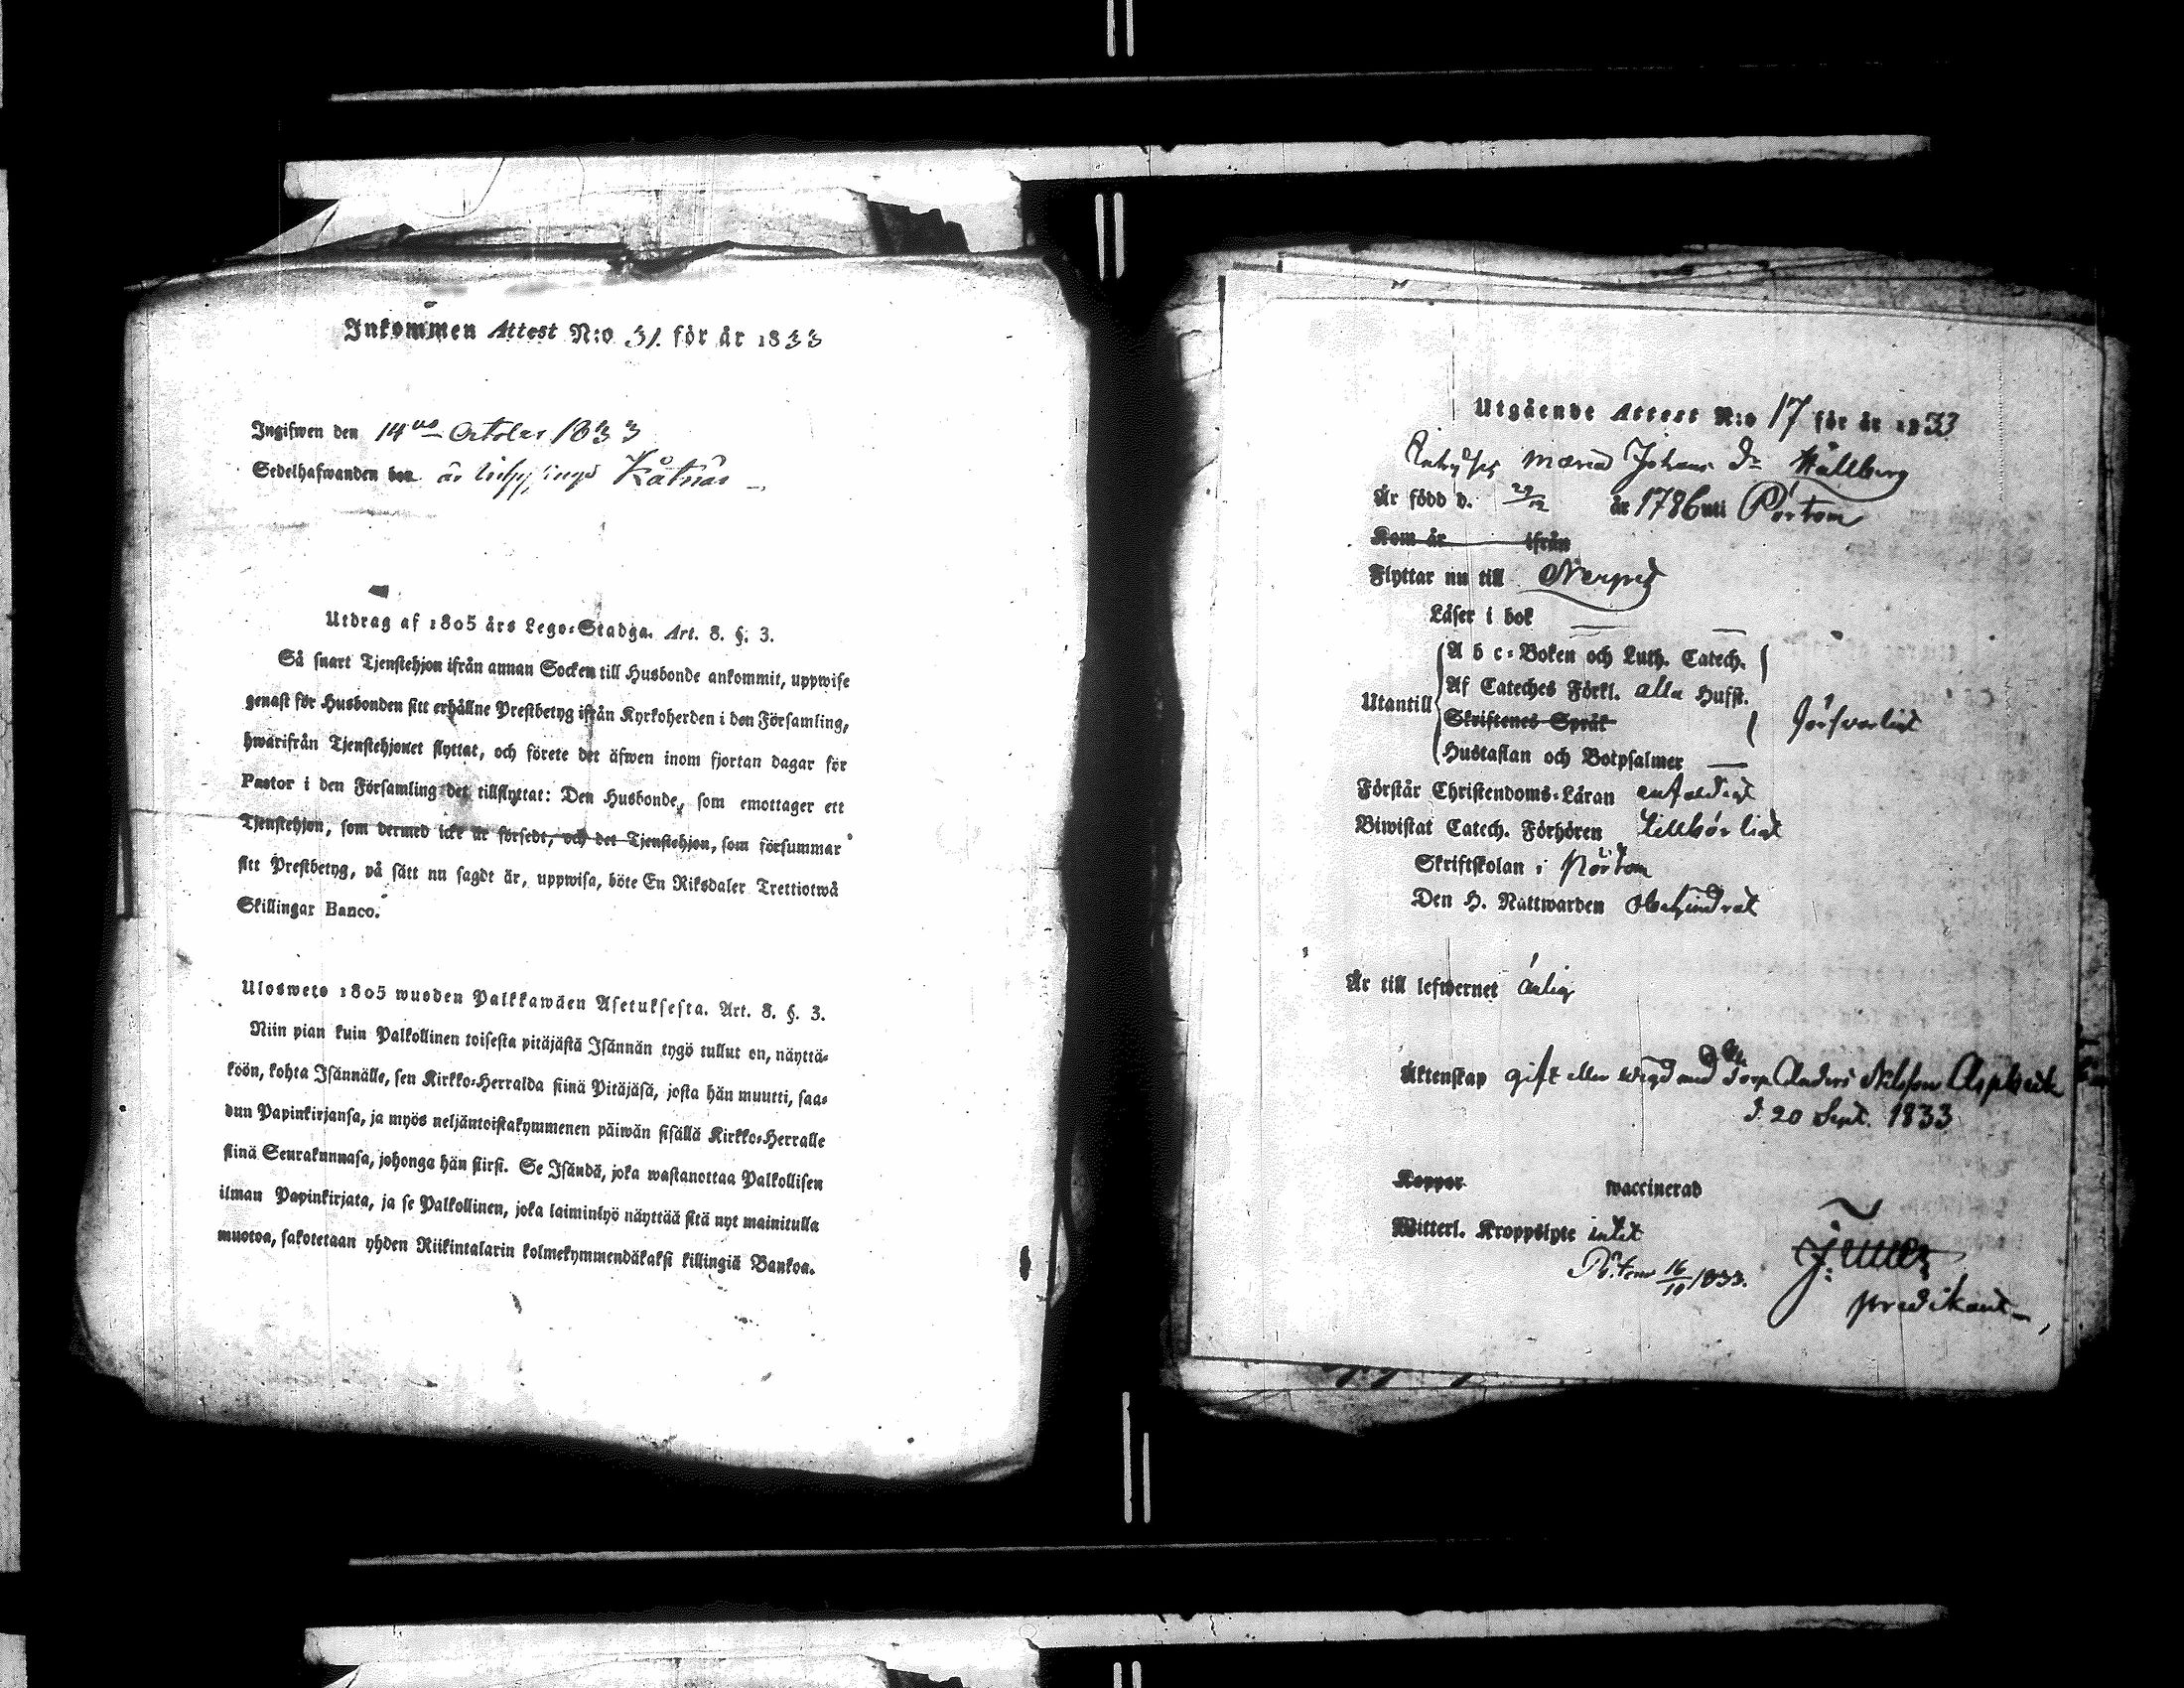 Inkommen Attest N:o 31. för år 1833
Ingifwen den 14de October 1833
Sedelhafwanden bor är Kåtnäs
Utdrag af 1805 års Lego-Stadga. Art. 8. §. 3.
Så snart Tjenstehjon ifrån annan Socken till Husbonde ankommit, uppwise
genast för Husbonden sitt erhållne Prestbetyg ifrån Kyrkoherden i den Församling,
hwarifrån Tjenstehjonet flyttat, och förete det äfwen inom fjortan dagar för
Pastor i den Församling det tillflyttat: Den Husbonde, som emottager ett
Tjenstehjon, som dermed icke är försedt, och det Tjenstehjon, som försummar
sitt Prestbetyg, på sätt nu sagdt är, uppwisa, böte En Riksdaler Trettiotwå
Skillingar Banco.
Ulosweto 1805 wuoden Palkkawäen Asetuksesta. Art. 8. §. 3.
Niin pian kuin Palkollinen toisesta pitäjästä Isännän tygö tullut on, näyttä-
köön, kohta Isännälle, sen Kirkko-Herralda siinä Pitäjäsä, josta hän muutti, saa-
dun Papinkirjansa, ja myös neljäntoistakymmenen päiwän sisällä Kirkko-Herralle
siinä Seurakunnasa, johonga hän siirsi. Se Isändä, joka wastanottaa Palkollisen
ilman Papinkirjata, ja se Palkollinen, joka laiminlyö näyttää sitä nyt mainitulla
muotoa, sakotetaan yhden Riikintalarin kolmekymmendäkaksi killingiä Bankoa.
Utgående Attest N:o 17 för år 1833
Maria Johans Dr Wållberg
Är född d. 29/12 år 1786 uti Pörtom
Kom år ifrån
Flyttar nu till Nerpes
Läser i bok
Utantill
A b c-Boken och Luth. Catech.
Af Cateches Förkl. alla Hufst.
Skriftenes Språk
Hustaflan och Botpsalmer
försvarligt
Förstår Christendoms-Läran enfaldigt
Biwistat Catech. Förhören tillbörligt
Skriftskolan i Pörtom
Den H. Nattwarden obehindrat
Är till lefwernet ärlig
Äktenskap gift eller wigd med Torp. Anders Nilsson Asplund
d. 20 Sept. 1833
Koppor waccinerad
Witterl. Kroppslyte intet
Pörtom 16/10 1833.
predikant